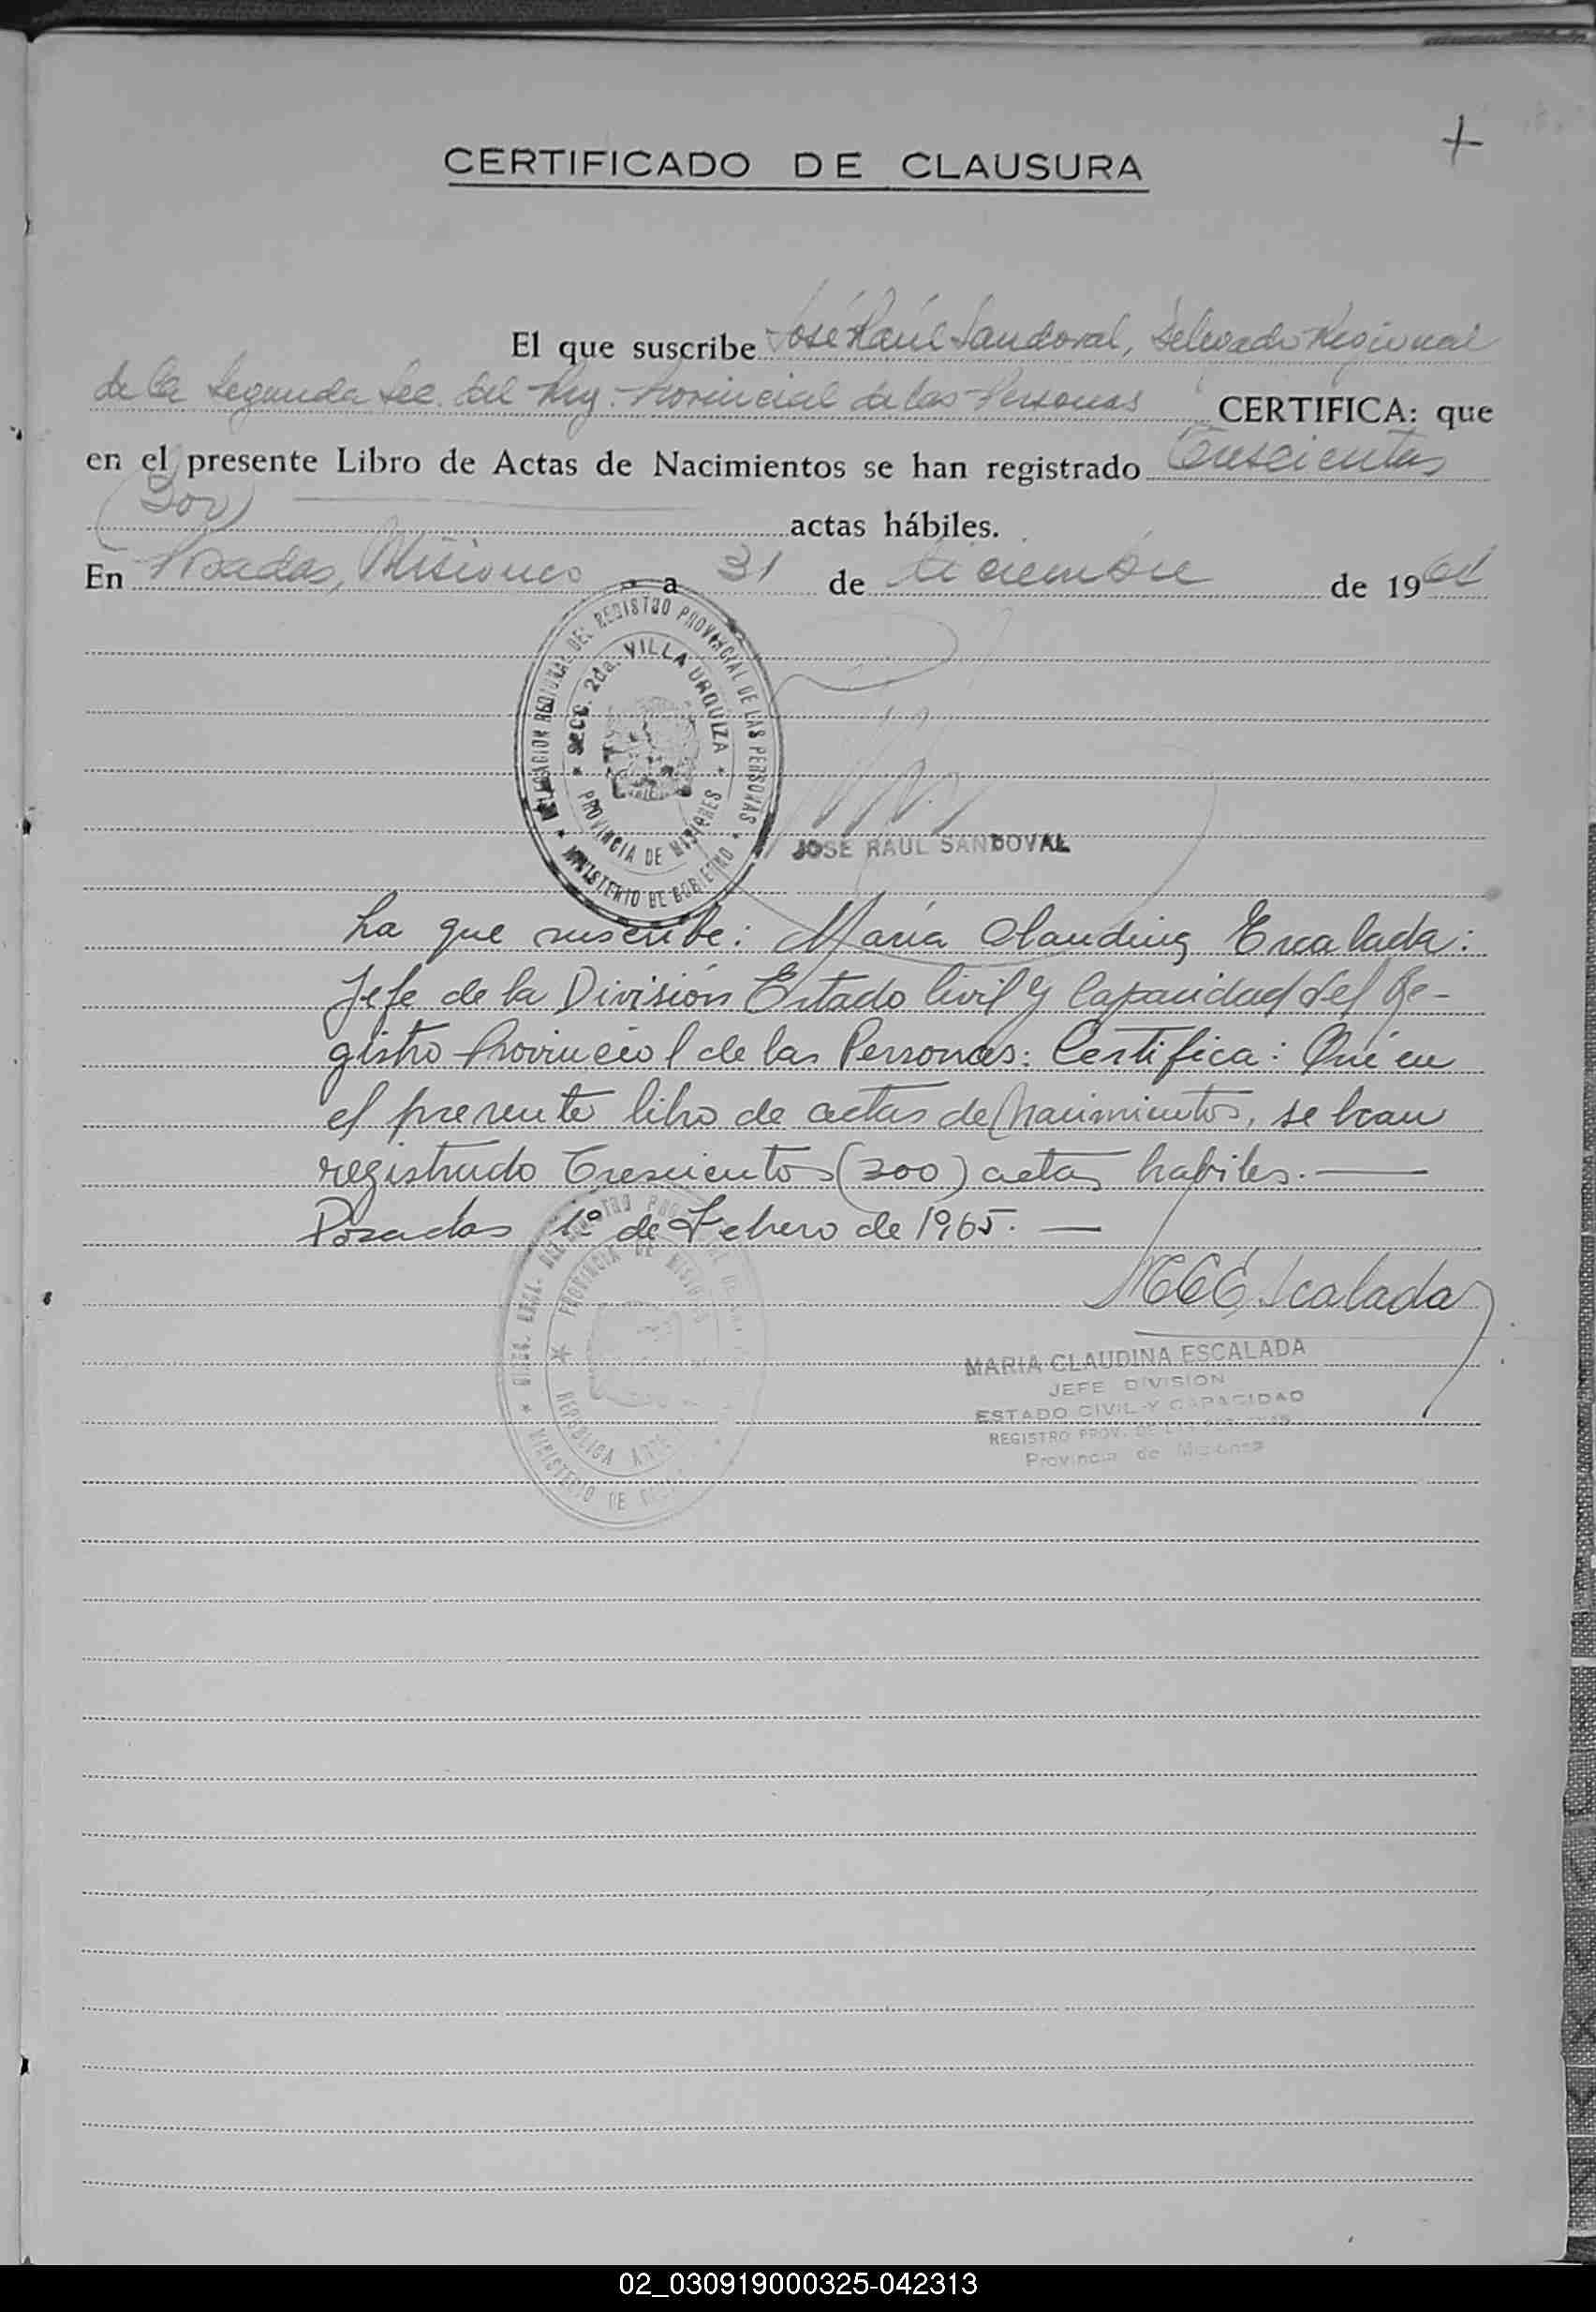 +
CERTIFICADO DE CLAUSURA
El que suscribe José Raúl Sandoval, Delegado Regional
de la Segunda Sec. del Reg. Provincial de las Personas CERTIFICA: que
en el presente Libro de Actas de Nacimientos se han registrado Trescientas
(300) actas hábiles.
En Posadas, Misiones a 31 de diciembre de 1964
DELEGACION REGIONAL DEL REGISTRO PROVINCIAL DE LAS PERSONAS
* MINISTERIO DE GOBIERNO *
* SECC. 2da. VILLA URQUIZA *
PROVINCIA DE MISIONES
JOSE RAUL SANDOVAL
La que suscribe: María Claudina Escalada:
Jefe de la División Estado Civil y Capacidad del Re-
gistro Provincial de las Personas: Certifica: Que en
el presente libro de actas de nacimientos, se han
registrado Trescientos (300) actas habiles. —
Posadas 1º de Febrero de 1965. —
MCEscalada
MARIA CLAUDINA ESCALADA
JEFE DIVISION
ESTADO CIVIL Y CAPACIDAD
REGISTRO PROV. DE LAS PERSONAS
Provincia de Misiones
PROVINCIA DE MISIONES
REPUBLICA
MINISTERIO DE
02_030919000325-042313